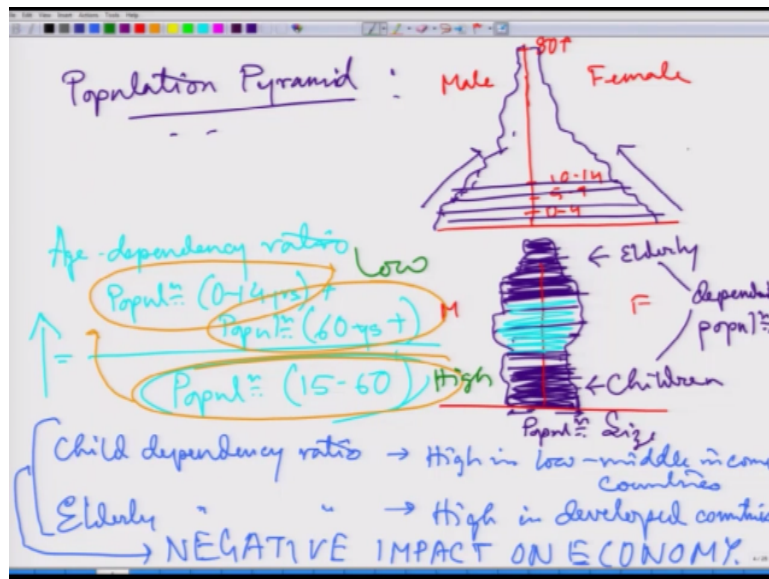 File Edit View Insert Actions Tools Help
Population Pyramid :
Male Female
80+
10-14
5-9
0-4
Age-dependency ratio
Low
Populⁿ (0-14 yrs) +
Populⁿ (60-ys +)
=
Populⁿ (15-60)
High
M F
← Elderly
dependent
populⁿ
← Children
Populⁿ Size
Child dependency ratio → High in low-middle income
countries
Elderly " " → High in developed countries
→ NEGATIVE IMPACT ON ECONOMY.